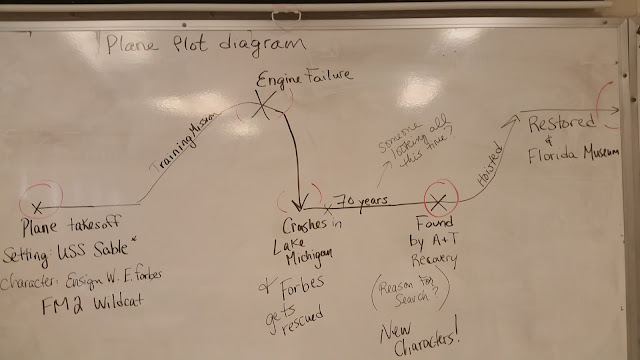 Plane Plot diagram
Engine Failure
Training Mission
Plane takeoff
Setting: USS Sable*
Character: Ensign W. E. Forbes
FM2 Wildcat
Crashes in
Lake
Michigan
& Forbes
gets
rescued
70 years
Someone
looking all
this time?
Found
by A+T
Recovery
(Reason for
Search?)
New
Characters!
Hoisted
Restored
&
Florida Museum